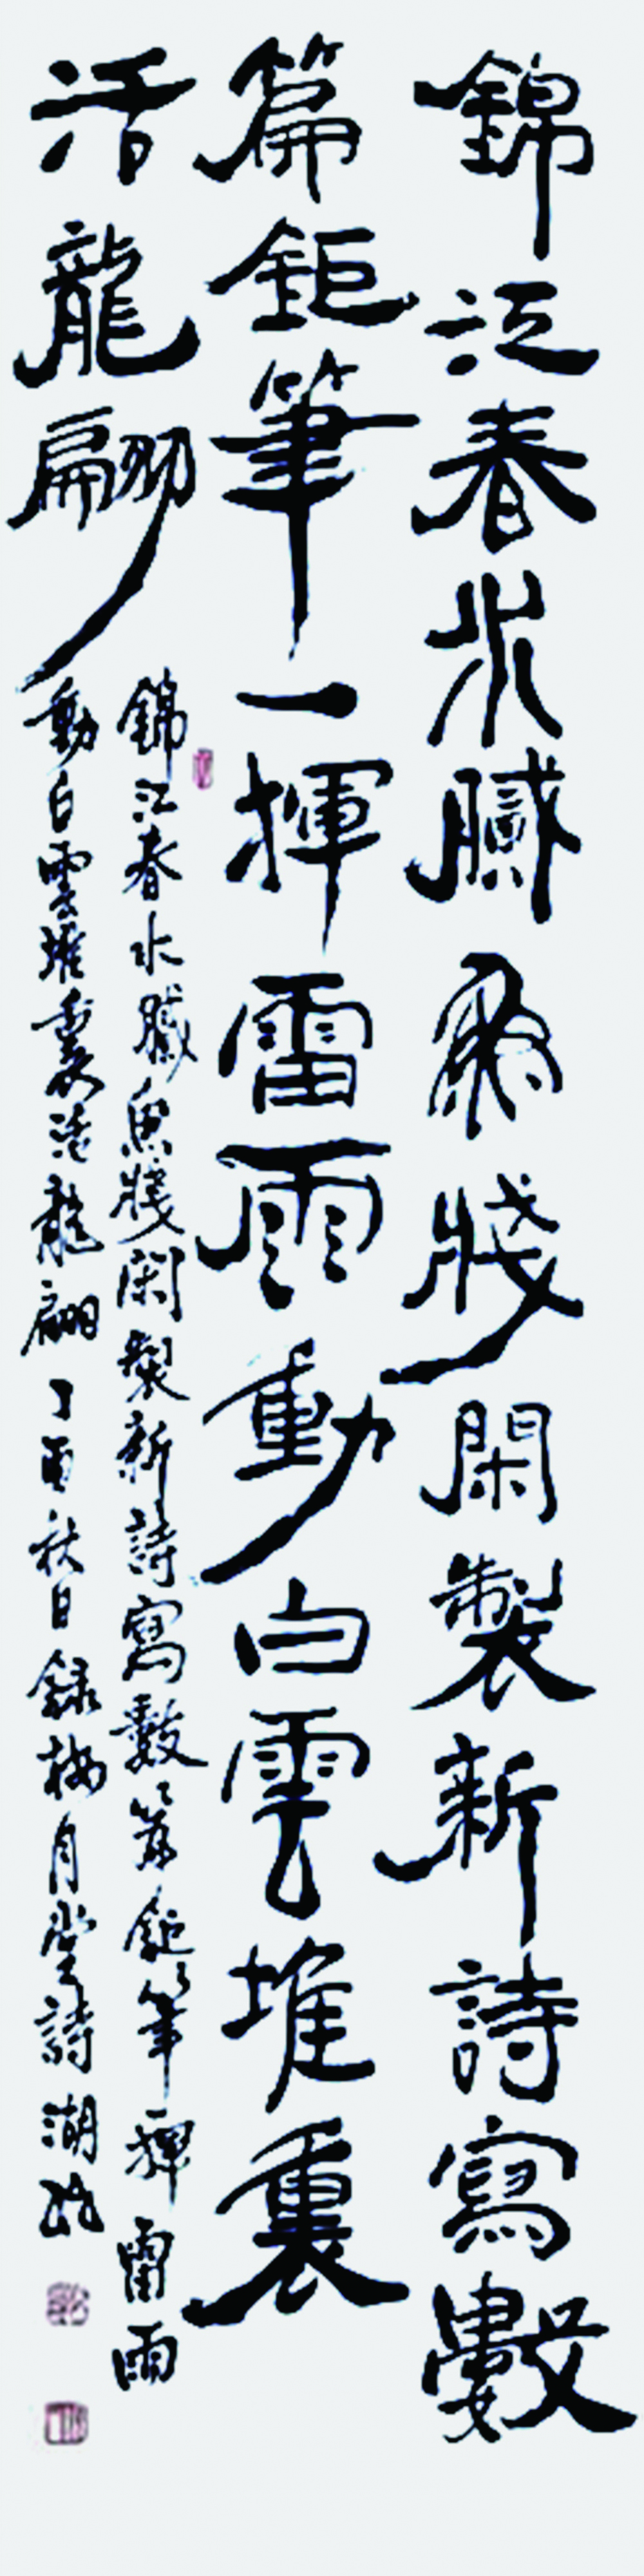 錦江春水膩魚牋閑製新詩寫數
篇鉅筆一揮雷雨動白雲堆裏
活龍翩
錦江春水膩魚牋閑製新詩寫數篇鉅筆一揮雷雨
動白雲堆裏活龍翩丁酉秋日錄梅月堂詩湖